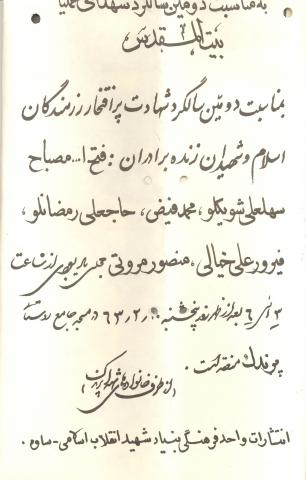 به مناسبت دومین سالگرد شهدای عملیا
بیت المقدس
بمناسبت دومین سالگرد شهادت پر افتخار رزمندگان
اسلام و شهیدان زنده برادران: فتح ا... مصباح
سهلعلی شویکلو، محمد فیضی، حاجعلی رمضانلو،
فیروز علی خیالی، منصور مروتی مجلس یادبودی از ساعت
۳ الی ۶ بعد از ظهر روز پنجشنبه ۶۳،۲،۲۰ در مسجد جامع روستای
منعقد است.
(از طرف خانواده های شهدا
انتشارات واحد فرهنگی بنیاد شهید انقلاب اسلامی - ساوه.